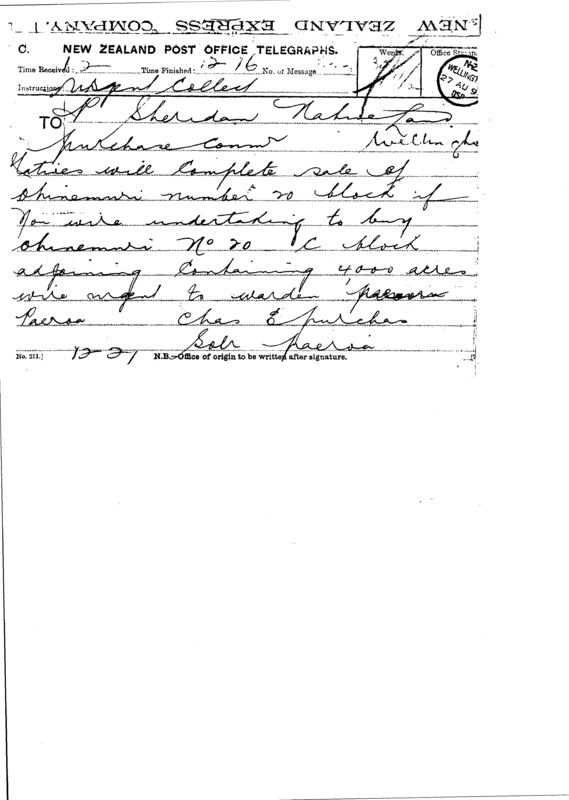 NEW ZEALAND EXPRESS COMPANY.
C. NEW ZEALAND POST OFFICE TELEGRAPHS.
Words. Office Stamp.
Time Received: 12 Time Finished: 12 16 No. of Message
Instructions: Urgent Collect
N.Z WELLINGT 27 AU 9
TO P Sheridan Native Land
purchase Commr Wellington
Natives will Complete sale of
Ohinemuri number 20 block if
You wire undertaking to buy
Ohinemuri No 20 C block
adjoining Containing 4000 acres
wire urgent to warden
Paeroa Chas E Purchas
Solr Paeroa
No. 211.] 12-21 N.B.—Office of origin to be written after signature.